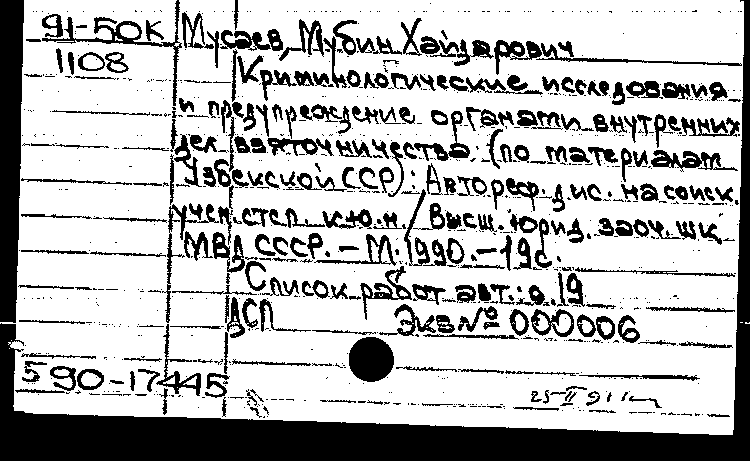 91-50К Мусаев, Мубин Хайдарович
1108 Криминологические исследования
и предупреждение органами внутренних
дел взяточничества: (по материалам
Узбекской ССР): Автореф. дис. на соиск.
учен. степ. к.ю.н. / Высш. юрид. заоч. шк.
МВД СССР. – М. 1990. – 19 с.
Список работ авт.: с. 19
ДСП Экз № 000006
5 90-17445
25 II 91